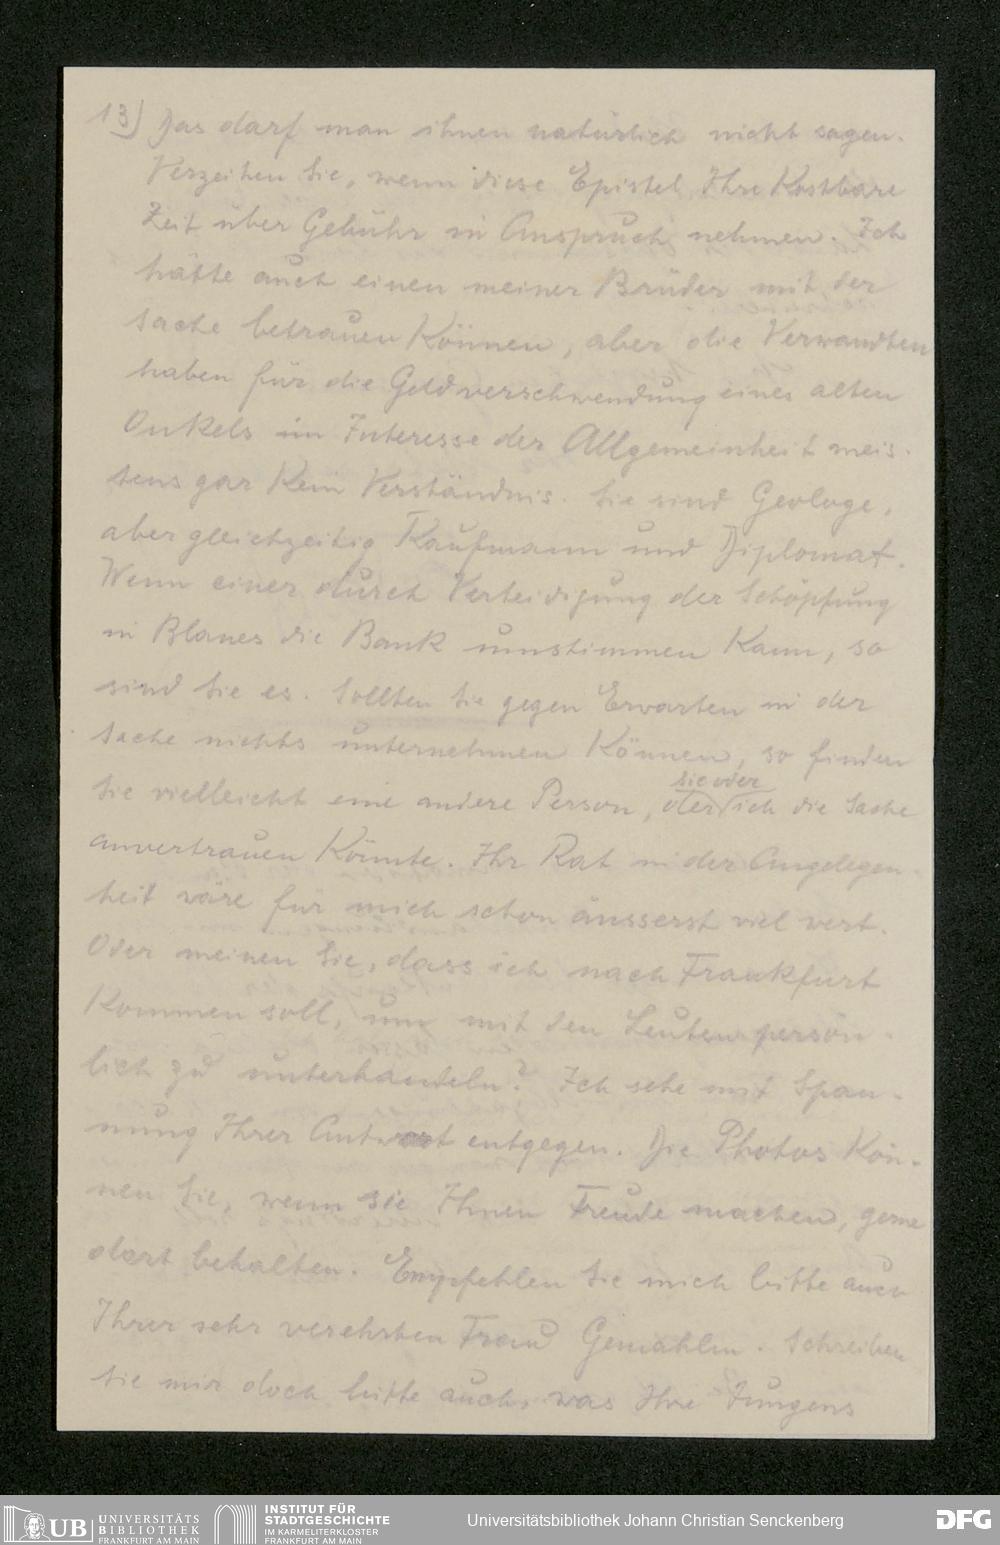 13) Das darf man ihnen natürlich nicht sagen.
Verzeihen Sie, wenn diese Epistel Ihre Kostbare
Zeit über Gebühr in Anspruch nehmen. Ich
hätte auch einen meiner Brüder mit der
Sache betrauen Können, aber die Verwandten
haben für die Geldverschwendung eines alten
Onkels im Interesse der Allgemeinheit meis-
tens gar Kein Verständnis. Sie sind Geologe,
aber gleichzeitig Kaufmann und Diplomat.
Wenn einer durch Verteidigung der Schöpfung
in Blanes die Bank umstimmen Kann, so
sind Sie es. Sollten Sie gegen Erwarten in der
Sache nichts unternehmen Können, so finden
Sie vielleicht eine andere Person, der Sie oder ich die Sache
anvertrauen Könnte. Ihr Rat in der Angelegen-
heit wäre für mich schon äusserst viel wert.
Oder meinen Sie, dass ich nach Frankfurt
Kommen soll, um mit den Leuten persön-
lich zu unterhandeln? Ich sehe mit Span-
nung Ihrer Antwort entgegen. Die Photos Kön-
nen Sie, wenn sie Ihnen Freude machen, gerne
dort behalten. Empfehlen Sie mich bitte auch
Ihrer sehr verehrten Frau Gemahlin. Schreiben
Sie mir doch bitte auch, was Ihre Jungens
UB UNIVERSITÄTS
BIBLIOTHEK
FRANKFURT AM MAIN
INSTITUT FÜR
STADTGESCHICHTE
IM KARMELITERKLOSTER
FRANKFURT AM MAIN
Universitätsbibliothek Johann Christian Senckenberg
DFG